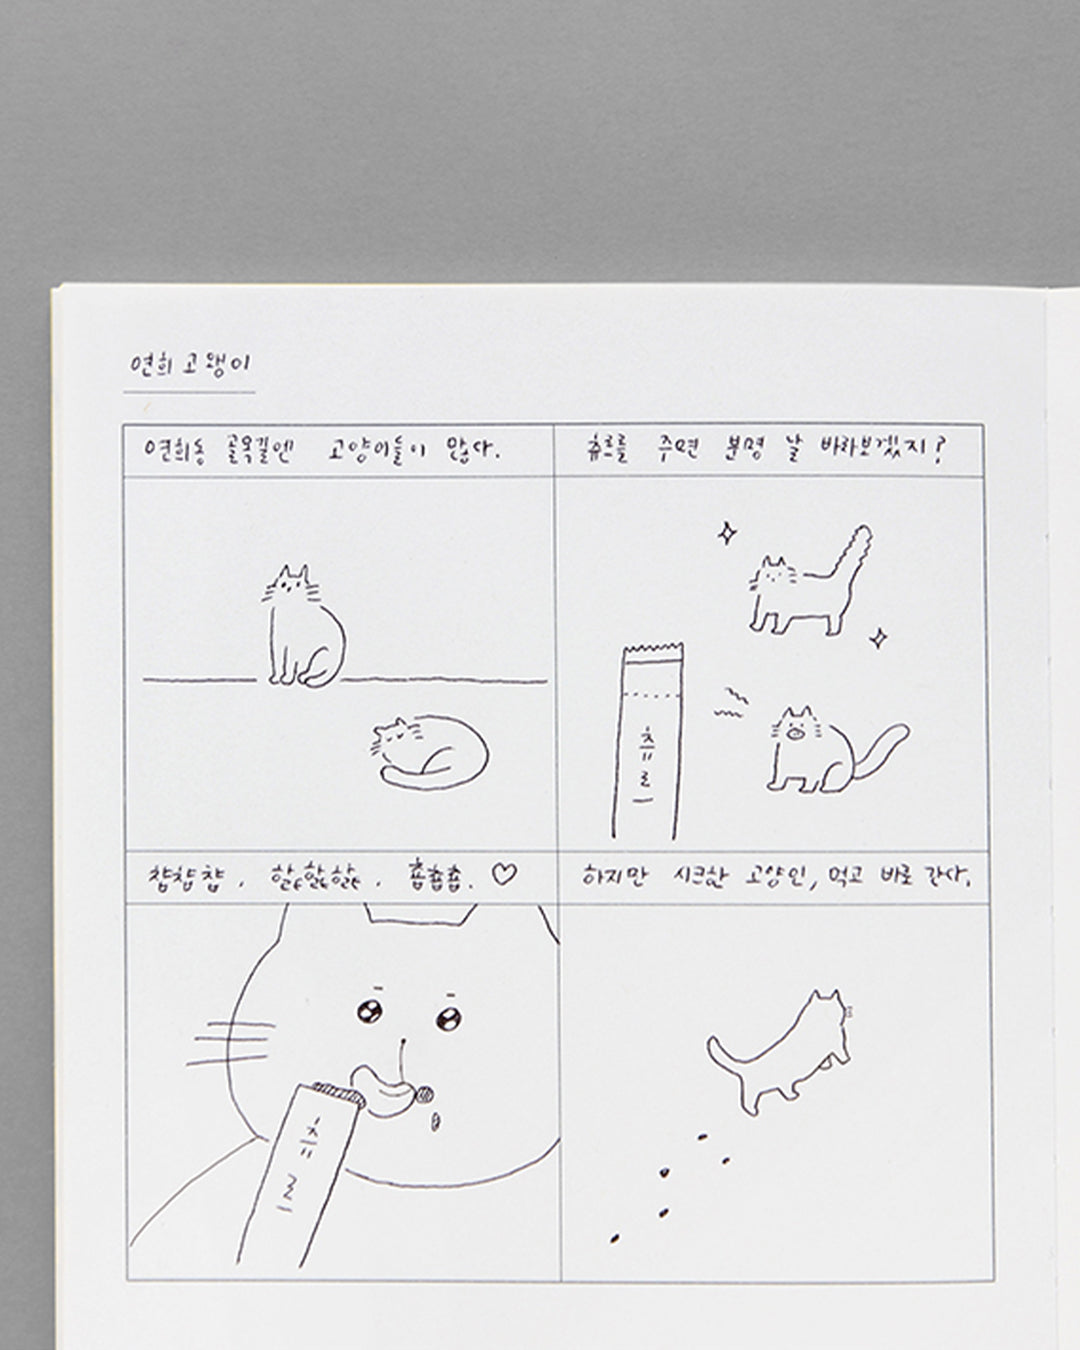 연희 고앵이
연희동 골목길엔 고양이들이 많다.
츄르를 주면 분명 날 바라보겠지?
츄르
챱챱챱. 할할할. 춉춉춉. ♡
하지만 시크한 고양인, 먹고 바로 간다.
츄르